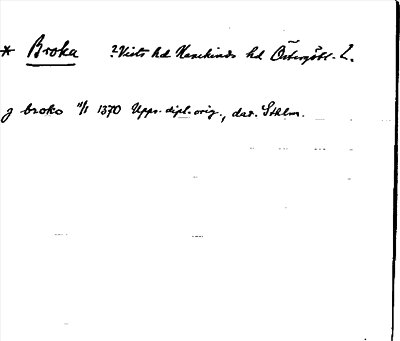 * Broka ? Vists hd Hanekinds hd Östergötl. L.
j broko 11/1 1370 Upps. dipl. orig., dat. Sthlm.